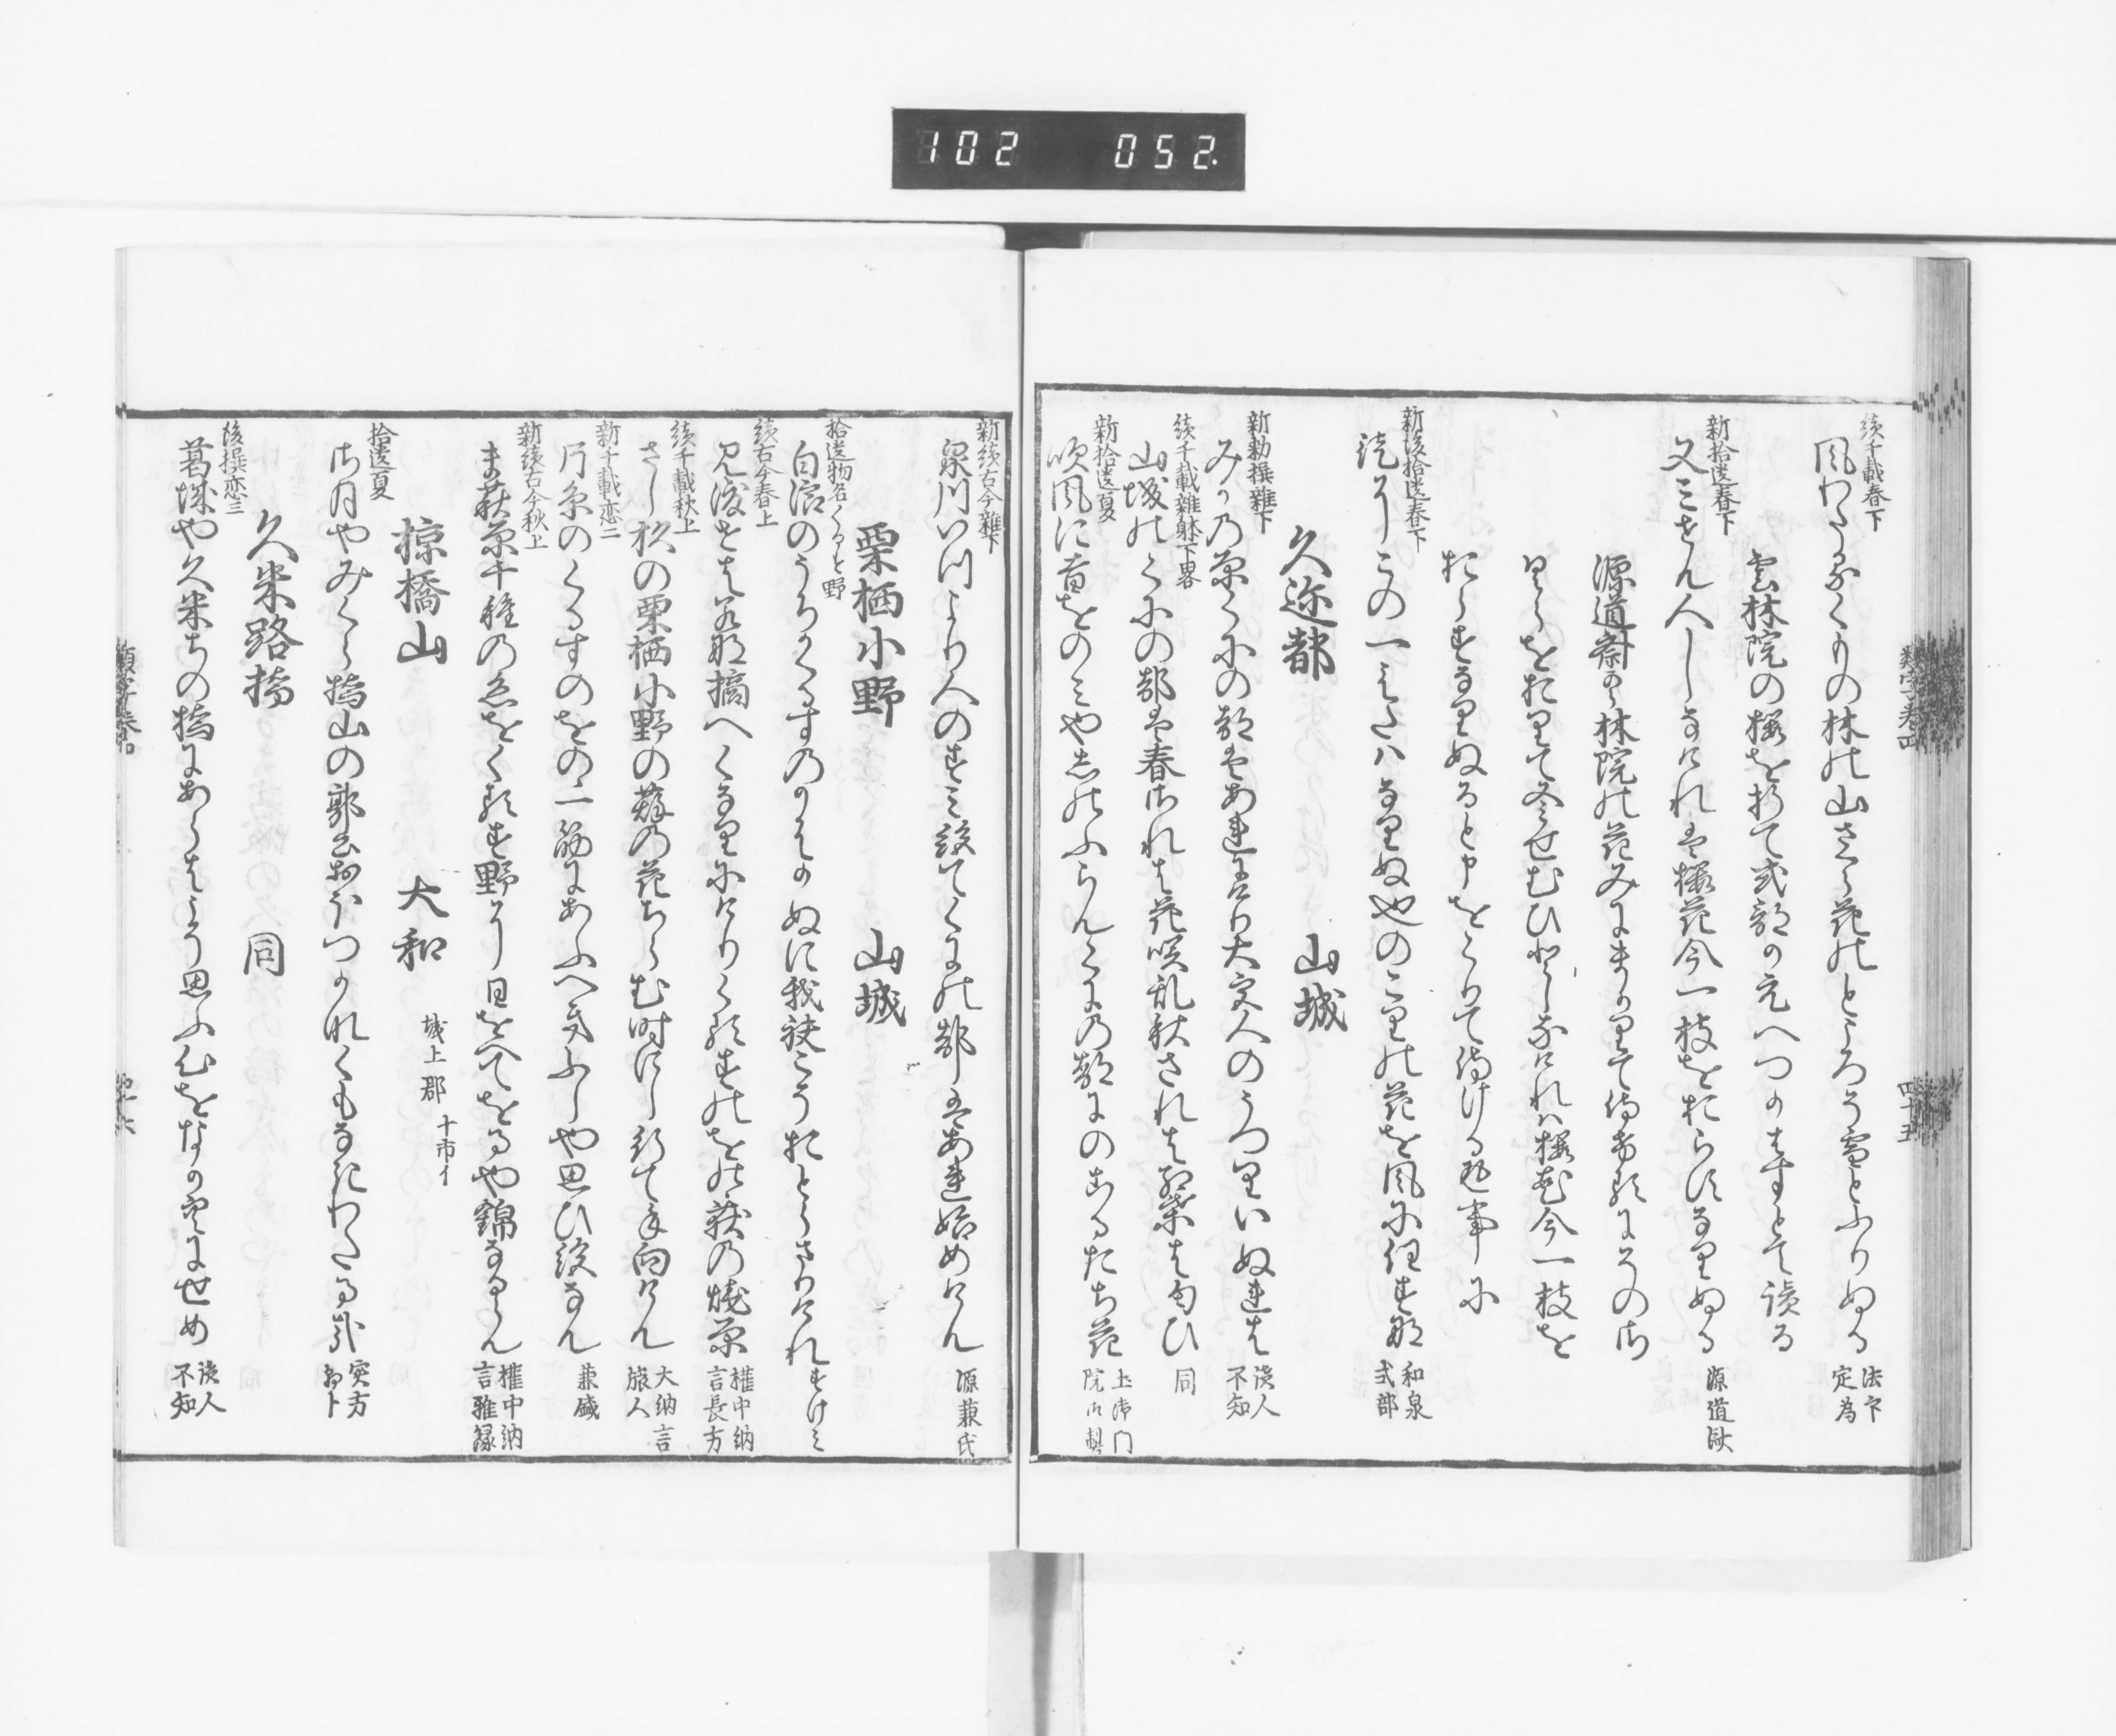 102 052.
続千載春下
風わたるくもの林の山さくら花のところそ雪とふりぬる 法印定為
雲林院の桜を折て式部の元へつかはすとて読る
新拾遺春下
又みせん人しなけれは桜花今一枝をおらすなりぬる 源道済
源道済雲林院の花みにまかりて侍けるにその
おらすなりぬると申をくりて侍ける返事に
新後拾遺春下
この一えたはなりぬ也のこりの花を風に任すな 和泉式部
久迩都 山城
新勅撰雑下
みかの原くにの都はあれにけり大宮人のうつりいぬれは 読人不知
続千載雑躰下畧
山城のくにの都は春されは花咲乱秋されは紅葉は匂ひ 同
新拾遺夏
吹風に昔をのみやしのふらんくにの都にのこるたち花 土御門院御製
類字巻四 四十五
新続古今雑下
泉川いつより人のすみ絶てくにの都はあれ始めけん 源兼氏
栗栖小野 山城
拾遺物名くるす野
白浪のうちかくるすのかはかぬに我袂こそおとらさりけれ すけみ
続古今春上
見渡せは若菜摘へくなりにけりくるすのをのの荻の焼原 権中納言長方
続千載秋上
さし杉の栗栖小野の萩の花ちらむ時にし行て手向けん 大納言旅人
新千載恋二
片糸のくるすのをの二筋にあふへきふしや思ひ絶なん 兼盛
新続古今秋上
ま萩原千種の色をくるす野に日をへてをるや錦なるらん 権中納言雅縁
掠橋山 大和 城上郡 十市イ
拾遺夏
五月やみくらはし山の郭公おほつかなくもなきわたる哉 実方朝臣
久米路橋 同
後撰恋三
葛城や久米ちの橋にあらはこそ思ふ心をなか空にせめ 読人不知